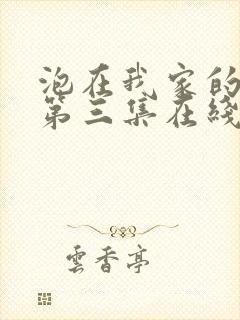 泡在我家的
第三集在綫
雲香亭